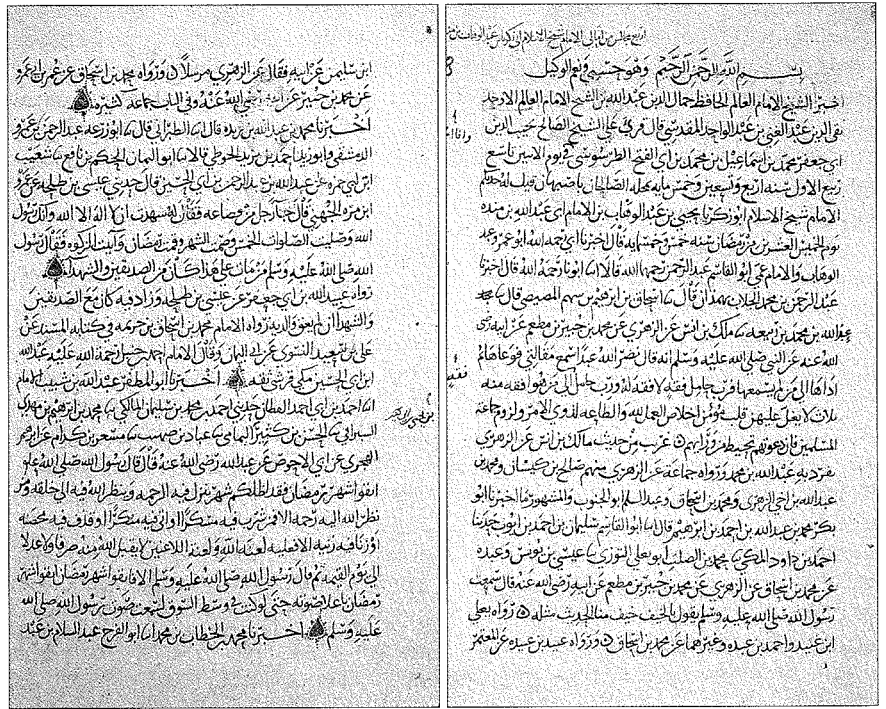 اربع مجالس من امالي الامام شيخ الاسلام ابي زكريا بن عبد الوهاب بن منده
بسم الله الرحمن الرحيم وهو حسبي ونعم الوكيل
اخبرنا الشيخ الامام العالم الحافظ جمال الدين عبد الله بن الشيخ الامام العالم الاوحد
تقي الدين عبد الغني بن عبد الواحد المقدسي قال قرئ على الشيخ الصالح نجيب الدين
ابي جعفر محمد بن اسماعيل بن محمد بن ابي الفتح الطرسوسي في يوم الاثنين تاسع
ربيع الاول سنه اربع وتسعين وخمس مايه بمحله الصالحان باصبهان قيل له اخبركم
الامام شيخ الاسلام ابو زكريا يحيى بن عبد الوهاب بن الامام ابي عبد الله بن منده
يوم الخميس العشرين من رمضان سنه خمس وخمسمايه قال اخبرنا ابي رحمه الله ابو عمرو عبد
الوهاب والامام عمي ابو القاسم عبد الرحمن رحمهما الله قالا انا ابونا رحمه الله قال اخبرنا
عبد الرحمن بن محمد الجلاب بهمدان قال نا اسحاق بن ابرهيم بن سهم المصيصي قال نا
عبد الله بن محمد بن ربيعه نا ملك بن انس عن الزهري عن محمد بن جبير بن مطعم عن ابيه رضي
الله عنه عن النبي صلى الله عليه وسلم انه قال نضر الله عبدا سمع مقالتي فوعاها ثم
اداها الى من لم يسمعها فرب حامل فقه لا فقه له ورب حامل الى من هو افقه منه
ثلاث لا يغل عليهن قلب مؤمن اخلاص العمل لله والطاعه لذوي الامر ولزوم جماعة
المسلمين فان دعوتهم تحيط من ورايهم غريب من حديث مالك بن انس عن الزهري
تفرد به عبد الله بن محمد ورواه جماعه عن الزهري منهم صالح بن كيسان ومحمد بن
عبد الله بن اخي الزهري ومحمد بن اسحاق وعبد السلم ابو الجنوب والمشهور ما اخبرنا ابو
بكر محمد بن عبد الله بن احمد بن ابرهيم قال انا ابو القاسم سليمان بن احمد بن ايوب حدثنا
احمد بن داود المكي نا محمد بن الصلت ابو يعلى التوزي نا عيسى بن يونس وعبده
عن محمد بن اسحاق عن الزهري عن محمد بن جبير بن مطعم عن ابيه رضي الله عنه قال سمعت
رسول الله صلى الله عليه وسلم يقول بالخيف خيف منا الحديث مثله رواه يعلى
ابن عبيد واحمد بن عبده وغيرهما عن محمد بن اسحاق ورواه عبيد بن عبيده عن المعتمر
ابن سليمن عن ابيه فقال عن الزهري مرسلا ورواه محمد بن اسحاق عن عمرو بن ابي عمرو
عن محمد بن جبير عن ابيه رضي الله عنه وفي الباب جماعه كثيره
اخبرنا محمد بن عبد الله بن ريذه قال انا الطبراني قال نا ابو زرعه عبد الرحمن بن عمرو
الدمشقي وابو زيد احمد بن يزيد الحوطي قالا نا ابو اليمان الحكم بن نافع نا شعيب
ابن ابي حمزه عن عبد الله بن عبد الرحمن بن ابي الحسين قال حدثني عيسى بن طلحه عن عمرو
ابن مره الجهني قال جا رجل من قضاعه فقال له شهدت ان لا اله الا الله وانك رسول
الله وصليت الصلوات الخمس وصمت الشهر وقمت رمضان وآتيت الزكوه فقال رسول
الله صلى الله عليه وسلم من مات على هذا كان من الصديقين والشهدا
رواه عبيد الله بن ابي جعفر عن عيسى بن طلحه وزاد فيه كان مع الصديقين
والشهدا ان لم يعق والديه رواه الامام محمد بن اسحاق بن خزيمه في كتابه المسند عن
علي بن سعيد النسوي عن ابي اليمان وقال الامام احمد بن حنبل رحمة الله عليه عبد الله
ابن ابي الحسين مكي قرشي ثقه اخبرنا ابو المظفر عبد الله بن شبيب الامام
انا احمد بن ابي احمد القطان حدثني احمد بن محمد بن سليمان المالكي نا محمد بن ابرهيم بن مهدي
السيرافي نا الحسن بن كثير اليمامي نا عباد بن صهيب نا مسعر بن كدام عن ابرهيم
الهجري عن ابي الاحوص عن عبد الله رضي الله عنه قال قال رسول الله صلى الله عليه
اتقوا شهر رمضان فقد اظلكم شهر ينزل فيه الرحمه وينظر الله فيه الى خلقه ومن
نظر الله اليه رحمه الا فمن شرب فيه مسكرا او اتى فيه منكرا او قذف فيه محصنه
او زنا فيه زنيه الا فعليه لعنه الله ولعنة اللاعنين لا يقبل الله منه صرفا ولا عدلا
الى يوم القيمه ثم قال رسول الله صلى الله عليه وسلم الا فاتقوا شهر رمضان اتقوا شهر
رمضان باعلا صوته حتى لو كنت في وسط السوق لسمعت صوت رسول الله صلى الله
عليه وسلم اخبرنا محمد بن الخطاب بن محمد انا ابو الفرج عبد السلام بن عبد